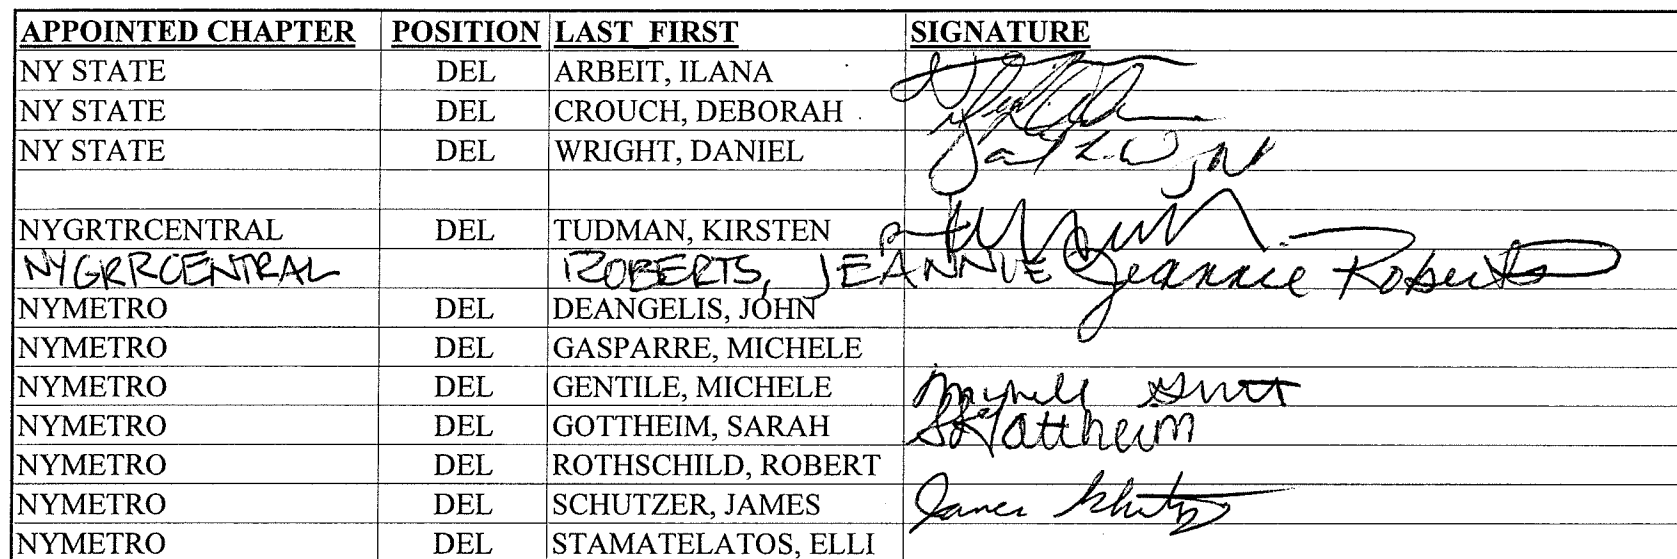 APPOINTED CHAPTER POSITION LAST FIRST SIGNATURE
NY STATE DEL ARBEIT, ILANA
NY STATE DEL CROUCH, DEBORAH
NY STATE DEL WRIGHT, DANIEL
NYGRTRCENTRAL DEL TUDMAN, KIRSTEN
NYGRRCENTRAL ROBERTS, JEANNIE Jeannie Roberts
NYMETRO DEL DEANGELIS, JOHN
NYMETRO DEL GASPARRE, MICHELE
NYMETRO DEL GENTILE, MICHELE
NYMETRO DEL GOTTHEIM, SARAH SGottheim
NYMETRO DEL ROTHSCHILD, ROBERT
NYMETRO DEL SCHUTZER, JAMES James
NYMETRO DEL STAMATELATOS, ELLI